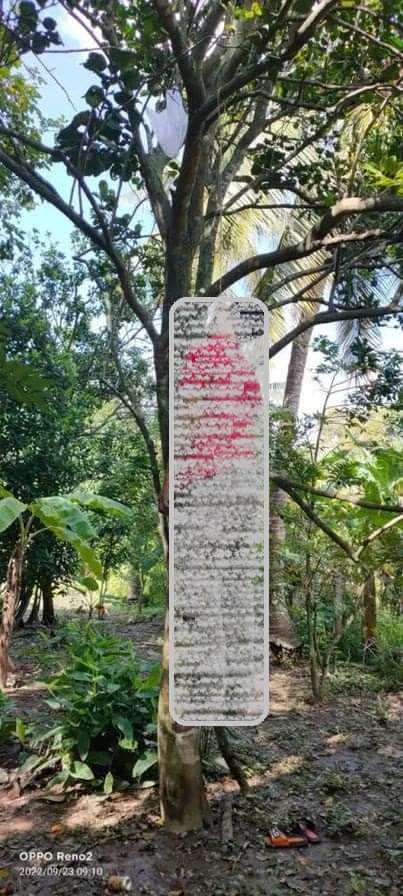 OPPO Reno2
2022/09/23 09:10